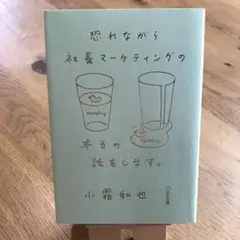 恐れながら
社長マーケティングの
本当の
話をします。
小霜和也